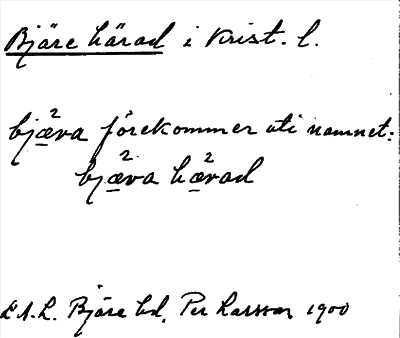 Bjäre härad i Krist. l.
bjæ̱²va förekommer uti namnet:
bjæ̱²va hæ̱²vad
L.A.L. Bjäre hd, Per Larsson 1900